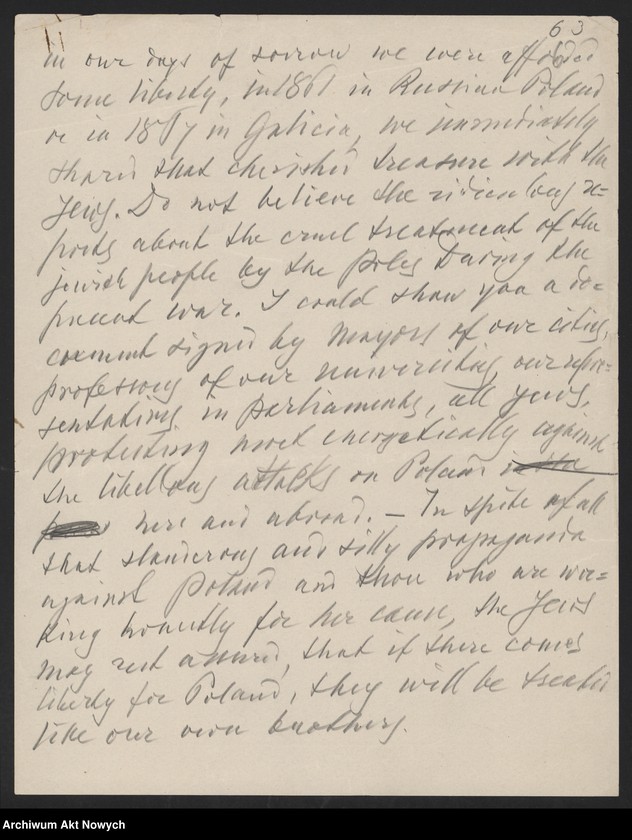 63
in our days of sorrow we were afforded
some liberty, in 1861 in Russian Poland
or in 1867 in Galicia, we immediately
shared that cherished treasure with the
Jews. Do not believe the ridiculous re=
ports about the cruel treatment of the
jewish people by the Poles during the
present war. I could show you a do=
cument signed by Mayors of our cities,
professors of our universities, our repre=
sentatives in parliaments, all Jews,
protesting most energetically against
the libellous attacks on Poland
here and abroad. — In spite of all
that slanderous and silly propaganda
against Poland and those who are wor=
king honestly for her cause, the Jews
may rest assured, that if there comes
liberty for Poland, they will be treated
like our own brothers.
Archiwum Akt Nowych